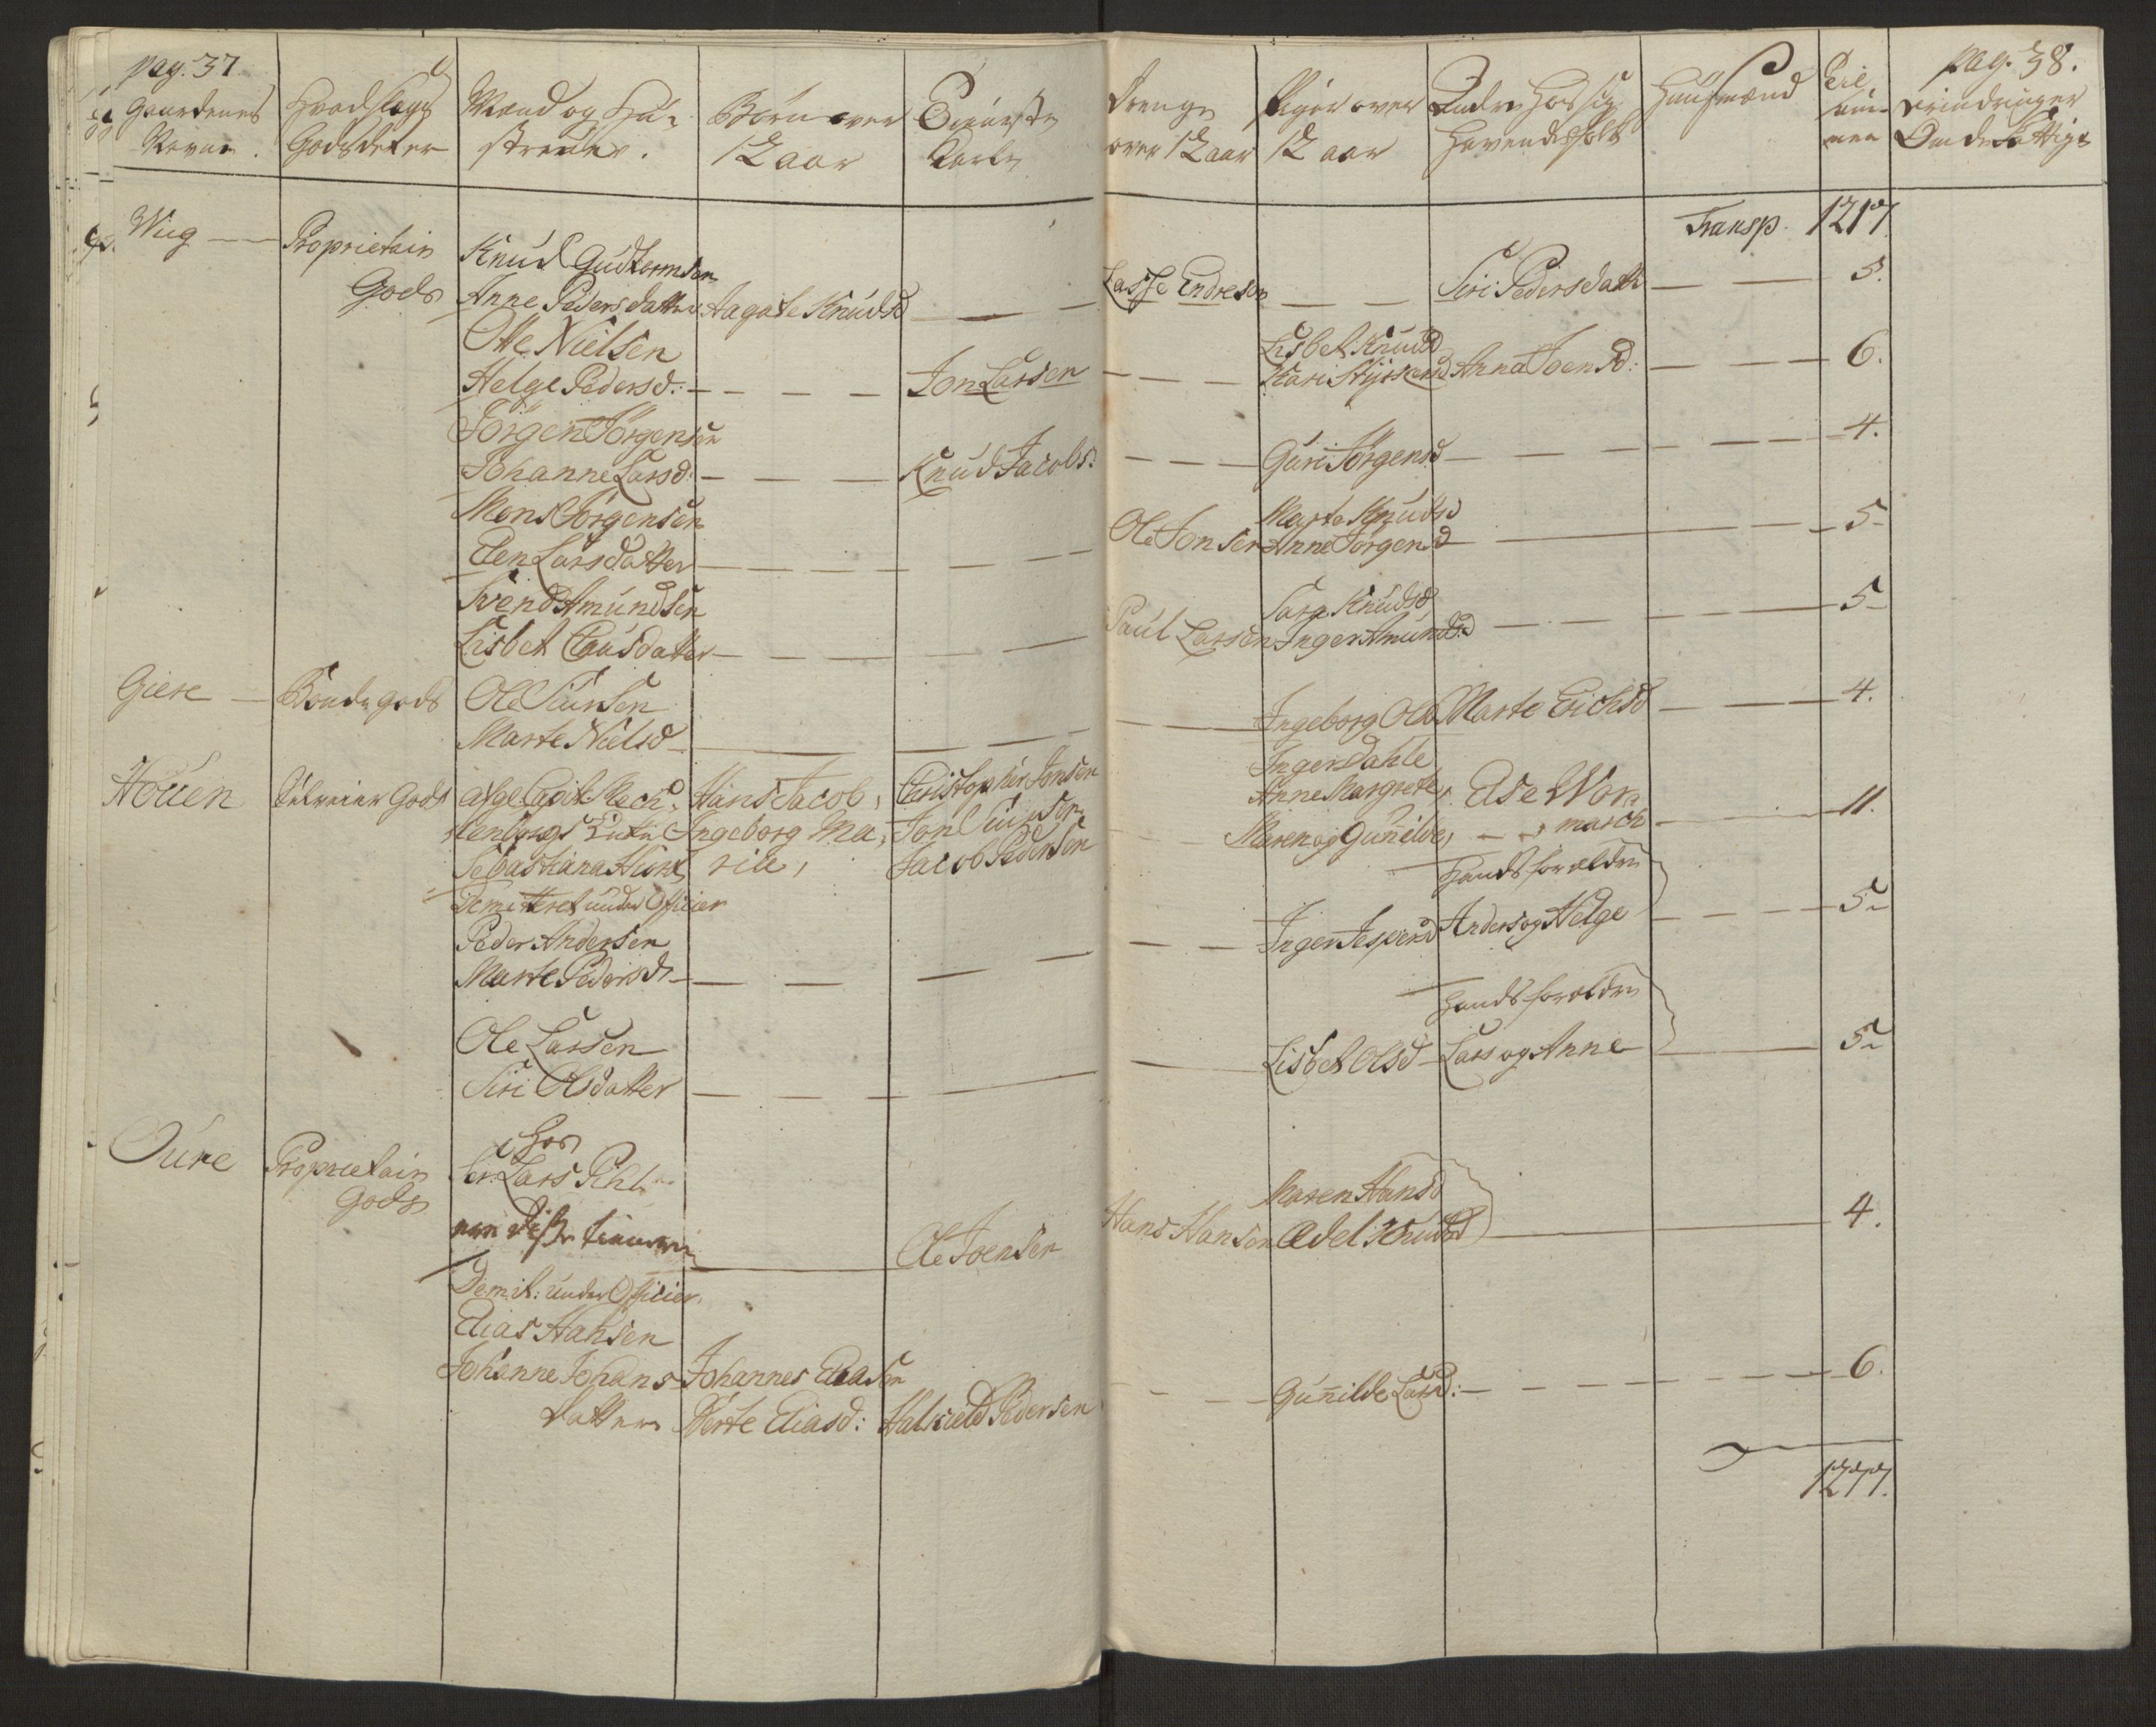 pag. 37.
Gaardenes Navne.
Hvadslags Godsdet er
Mænd og Hu-
struer.
Børn over
12 aar
Tieniste
Karle
Drenge
over 12 aar
Piger over
12 aar
Andre hos sig
havende folk
Huusmænd
Til
sam-
men
pag. 38.
Erindringer
Om de fattige
Transp. 1217.
Wiig — Proprietair Gods
Knud Gudtormsen
Anne Pedersdatter Aagate Knudsd — — Lasse Endresen — — Siri Pedersdatt — — 5.
Otte Nielsen
Lisbet Knudsd
Helge Pedersd: — — — Jon Larsen — — — Anna Joensd: — — — 6.
Jörgen Jörgensen
Johanne Larsd: — — — Knud Jacobs: — — — Guri Jörgensd — — — — 4.
Mons Jörgensen
Marte Knudsd
Elen Larsdatter — — — Ole Jonsen Anne Jörgensd — — — 5
Svend Amundsen
Sara Knudsd
Lisbet Clausdatter — — — Paul Larsen Inger Amundsd — — — 5
Giere — Bonde gods Ole Siursen
Marte Nielsd — — — Ingeborg Olsd Marte Erichsd — — — 4.
Houen
Selveier Gods
afge Capit Mech-
lenborgs Enke
Sebastiana
Hans Jacob,
Ingeborg Ma-
rie,
Christopher Jonsen
Jon Siursen
Jacob Pedersen
Inger Dahle
Anne Margrete,
Maren og Gunilde,
Else Wor-
march — 11.
Demitteret under Officier
Peder Andersen
Marte Pedersd — — — Inger Jespersd
Hands forældre
Anders og Helge — — — 5
Ole Larsen
Siri Olsdatter — — — Lisbet Olsd
Hands forældre
Lars og Anne — — 5
Oure
Proprietair
Gods
Hos
Sr. Lars Pihl
Ole Joensen
Hans Hansen
Maren Hansd
Adel Knudsd — — 4.
Demit: under Officier
Elias Hansen
Johanne Johans-
datter
Johannes Eliasen
Berte Eliasd:
Halsield Pedersen
— — Gunilde Larsd: — — — 6.
1277.